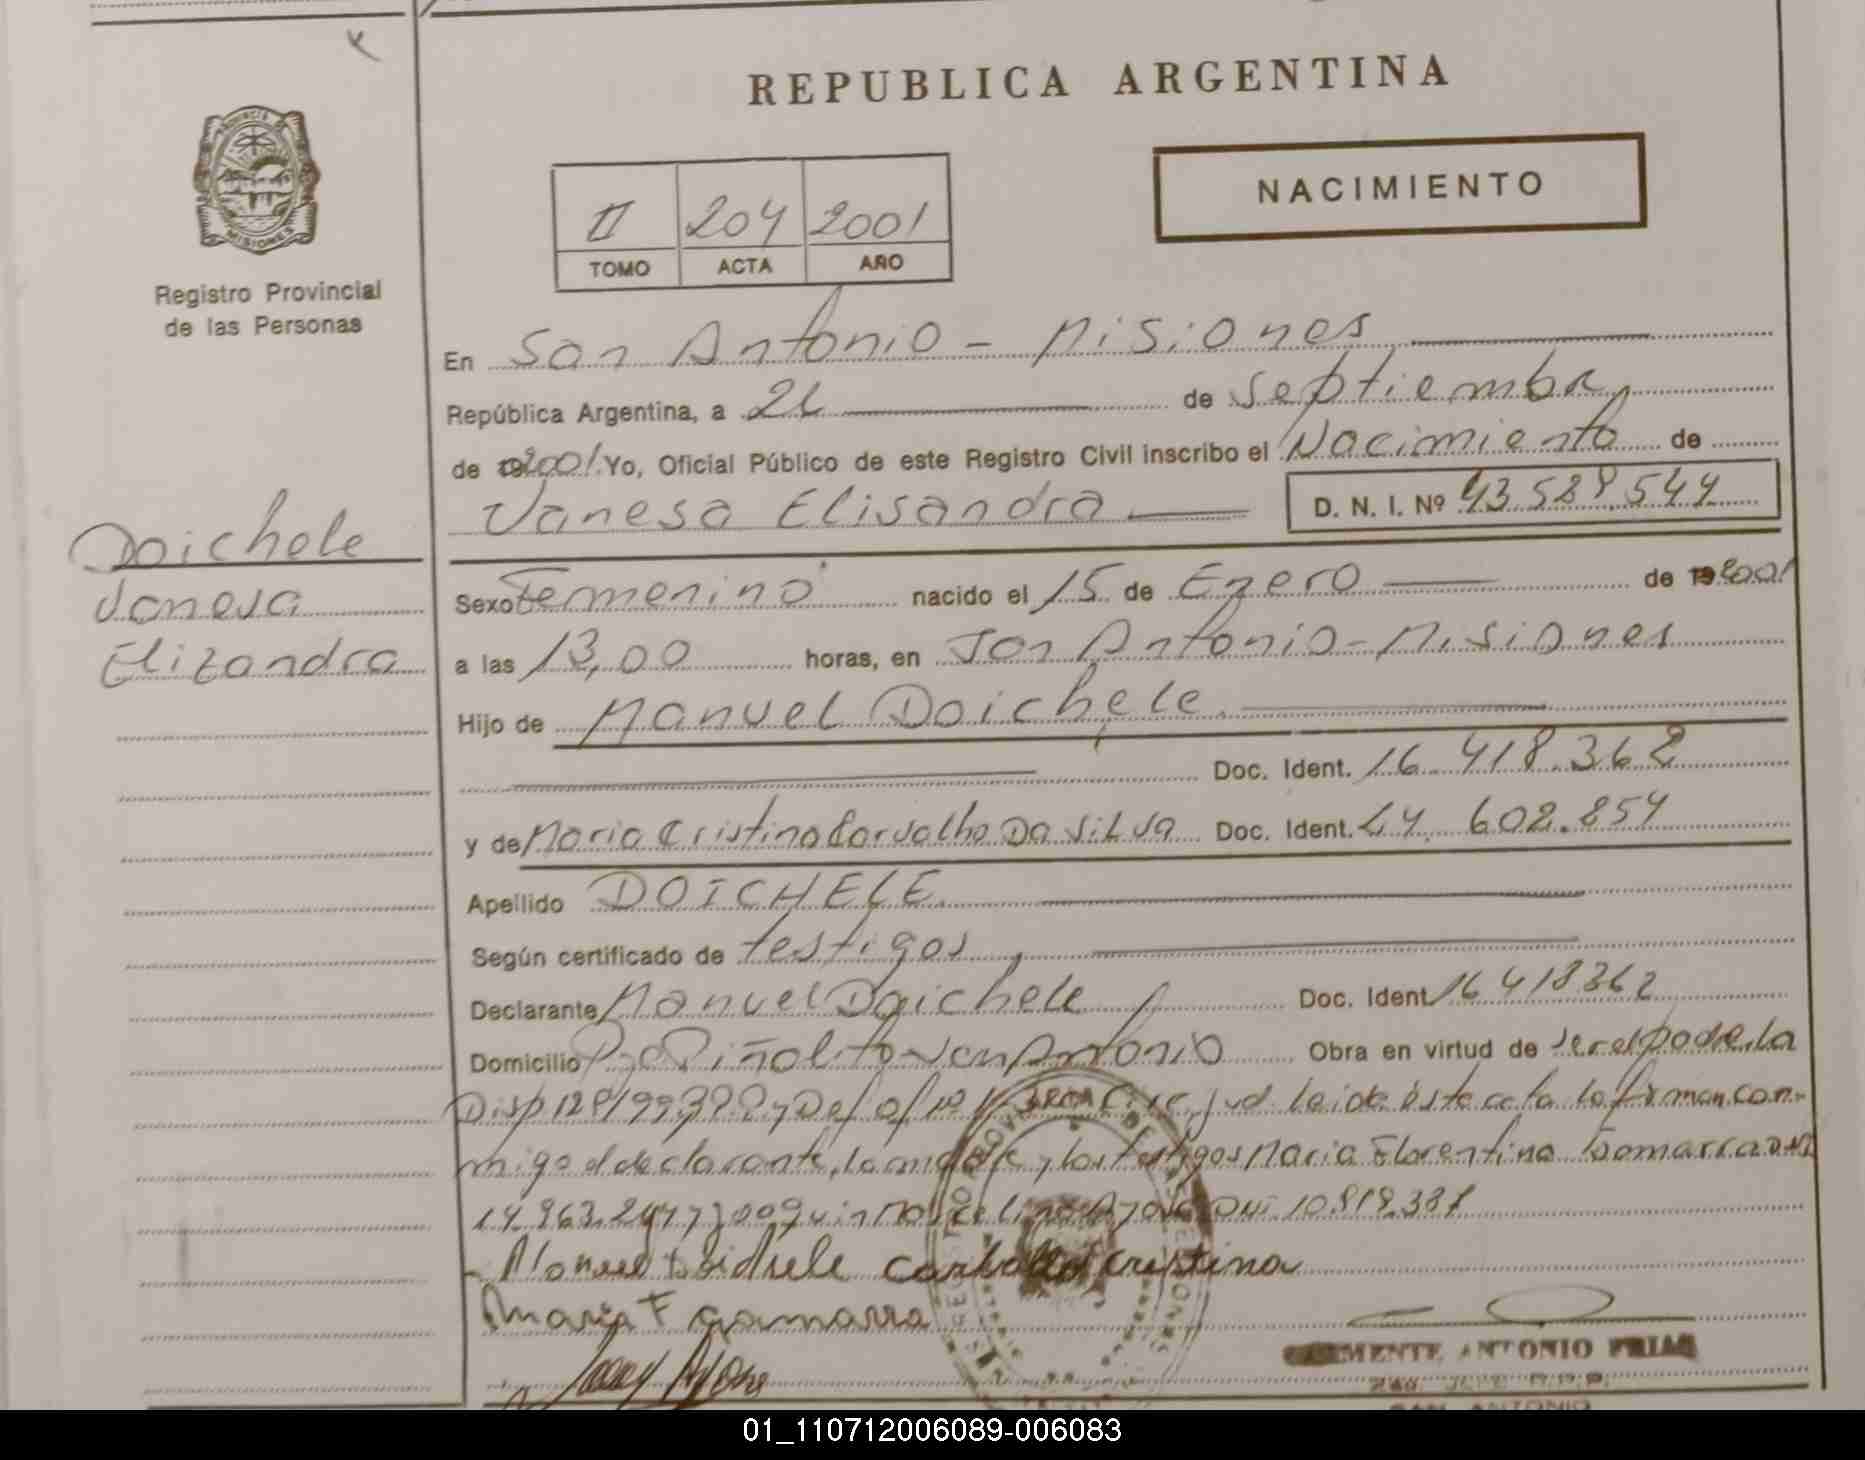 REPUBLICA ARGENTINA
PROVINCIA DE
MISIONES
Registro Provincial
de las Personas
NACIMIENTO
II 204 2001
TOMO ACTA AÑO
En San Antonio - Misiones
República Argentina, a 21 de Septiembre
de 2001 Yo, Oficial Público de este Registro Civil inscribo el Nacimiento de
Vanesa Elisandra D. N. I. Nº 43.529.544
Doichele
Vanesa
Elizandra
Sexo Femenino nacido el 15 de Enero de 2001
a las 13,00 horas, en San Antonio - Misiones
Hijo de Manuel Doichele
Doc. Ident. 16.418.362
y de Maria Cristina Carvalho Da Silva Doc. Ident. 602.854
Apellido DOICHELE
Según certificado de testigos
Declarante Manuel Doichele Doc. Ident 16418362
Domicilio Piñalito San Antonio Obra en virtud de
Disp leida éste acta la firman con-
migo el declarante, la madre y los testigos Maria Florentina Gamarra DNI
DNI 10.819.381
Manuel Doichele Cristina
Maria F Gamarra
CLEMENTE ANTONIO FRIAS
SAN ANTONIO
01_110712006089-006083